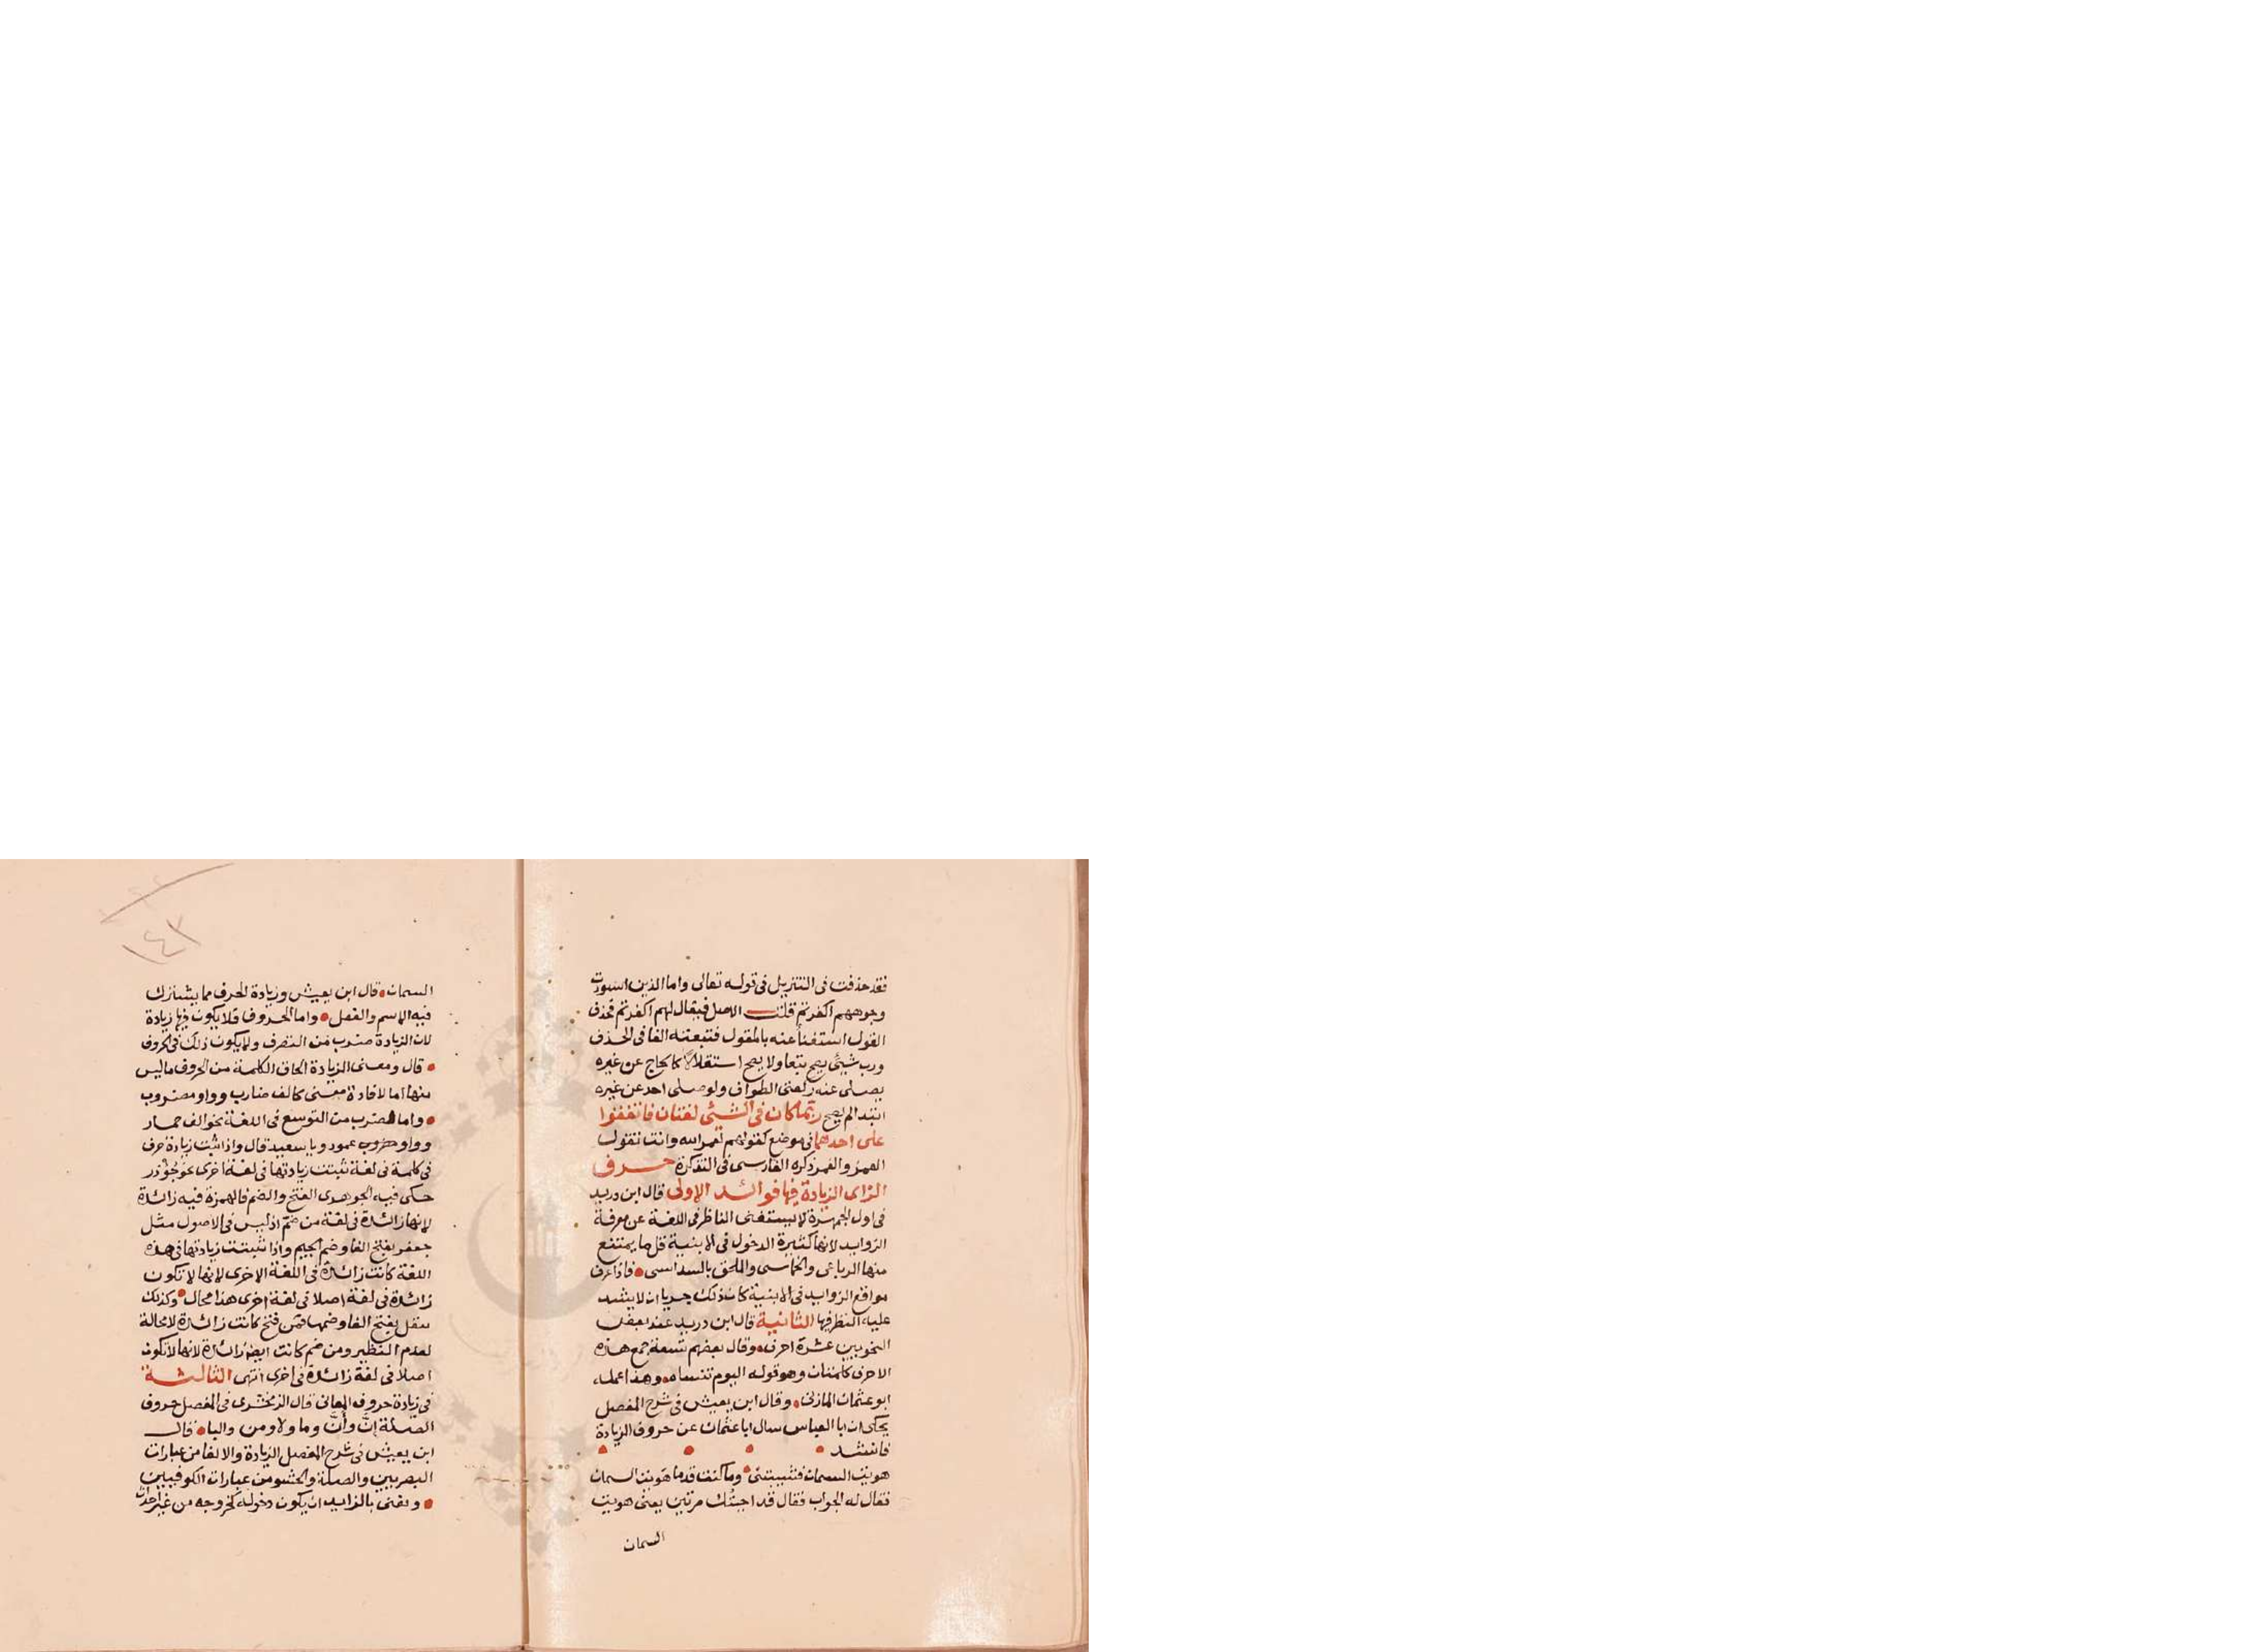 فقد حذفت فى التنزيل فى قوله تعالى واما الذين اسودت
وجوههم اكفرتم قلت الاصل فيقال لهم اكفرتم فحذف
القول استغناً عنه بالمقول فتبعته الفا فى الحذف
ورب شيئى يصح تبعا ولا يصح استقلالا كالحاج عن غيره
يصلى عنه ركعتى الطواف ولو صلى احد عن غيره
ابتدا لم يصح ربما كان فى الشيئى لغتان فاتفقوا
على احدهما فى موضع كقولهم لعمر الله وانت تقول
العمر والعمر ذكره الفارسى فى التذكرة حرف
الزاى الزيادة فيها فوائد الاولى قال ابن دريد
فى اول الجمهرة لا يستغنى الناظر فى اللغة عن معرفة
الزوايد لانها كثيرة الدخول فى الابنية قل ما يمتنع
منها الرباعى والخماسى والملحق بالسداسى فاذا عرف
مواقع الزوايد فى الابنية كان ذلك حريا ان لا يشد
عليه النظر فيها الثانية قال ابن دريد عند بعض
النحويين عشرة احرف وقال بعضهم تسعة جمع هذه
الاحرف كلمتان وهو قوله اليوم تنساه وهذا عمله
ابو عثمان المازنى وقال ابن يعيش فى شرح المفصل
يحكى ان ابا العباس سال ابا عثمان عن حروف الزيادة
فانشد
هويت السمان فشيبتنى وما كنت قدما هويت السمان
فقال له الجواب فقال قد اجبتك مرتين يعنى هويت
السمان
١٤٢
السمان قال ابن يعيش وزيادة الحرف مما يشترك
فيه الاسم والفعل واما الحروف فلا يكون فيها زيادة
لان الزيادة ضرب من التصرف ولا يكون ذلك فى الحروف
قال ومعنى الزيادة الحاق الكلمة من الحروف ما ليس
منها اما لافادة معنى كالف ضارب وواو مضروب
واما لضرب من التوسع فى اللغة نحو الف حمار
وواو عمود ويا سعيد قال واذا ثبت زيادة حرف
فى كلمة فى لغة ثبتت زيادتها فى لغة اخرى نحو جؤذر
حكى فيه الجوهرى الفتح والضم فالهمزة فيه زائدة
لانها زائدة فى لغة من ضم اذ ليس فى الاصول مثل
جعفر بفتح الفا وضم الجيم واذا ثبتت زيادتها فى هذه
اللغة كانت زائدة فى اللغة الاخرى لانها لا تكون
زائدة فى لغة اصلا فى لغة اخرى هذا محال وكذلك
تتفل بفتح الفا وضمها فمن فتح كانت زائدة لا محالة
لعدم النظير ومن ضم كانت ايضا زائدة لانها لا تكون
اصلا فى لغة زائدة فى اخرى انتهى الثالثة
فى زيادة حروف المعانى قال الزمخشرى فى المفصل حروف
الصلة إنْ وأنْ وما ولا ومن والبا قال
ابن يعيش فى شرح المفصل الزيادة والالغا من عبارات
البصريين والصلة والحشو من عبارات الكوفيين
ونعنى بالزايد ان يكون دخوله كخروجه من غير احداث